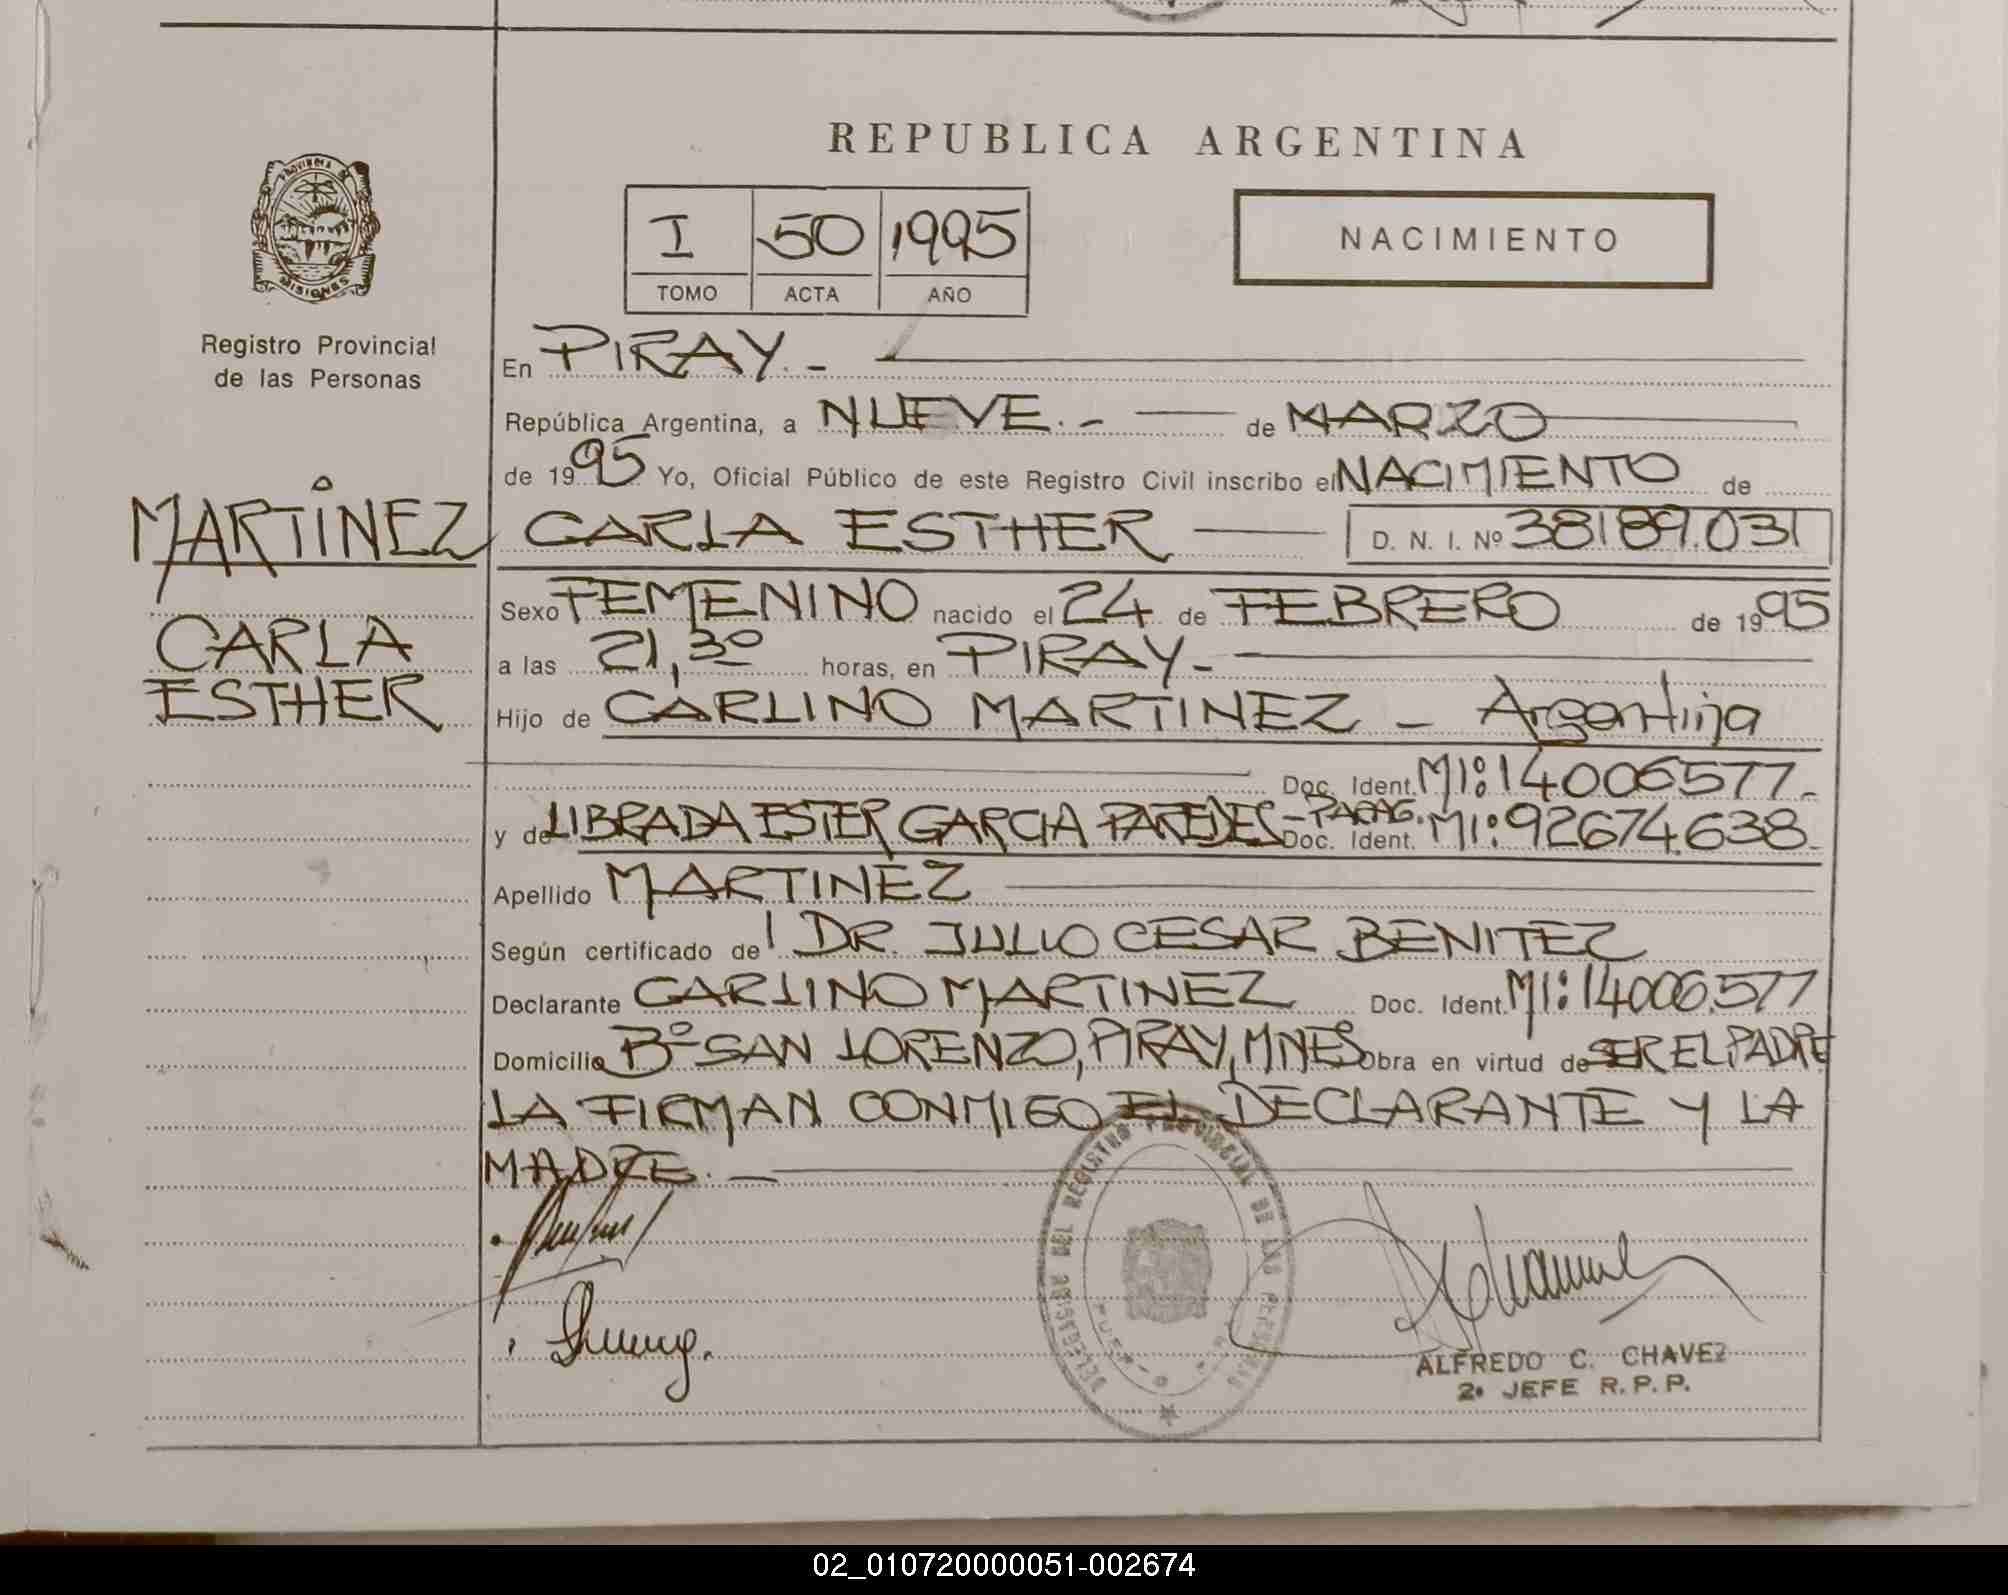 REPUBLICA ARGENTINA
PROVINCIA DE
MISIONES
Registro Provincial
de las Personas
I 50 1995
TOMO ACTA AÑO
NACIMIENTO
En PIRAY.-
República Argentina, a NUEVE.- de MARZO
de 1995 Yo, Oficial Público de este Registro Civil inscribo el NACIMIENTO de
MARTINEZ
CARLA ESTHER D. N. I. Nº 38189.031
Sexo FEMENINO nacido el 24 de FEBRERO de 1995
CARLA
ESTHER
a las 21,30 horas, en PIRAY.-
Hijo de CARLINO MARTINEZ - Argentina
Doc. Ident. MI: 14006577.-
y de LIBRADA ESTER GARCIA PAREDES - PARAG. Doc. Ident. MI: 92674.638-
Apellido MARTINEZ
Según certificado del DR. JULIO CESAR BENITEZ
Declarante CARLINO MARTINEZ Doc. Ident. MI: 14006.577
Domicilio Bº SAN LORENZO, PIRAY, MNES Obra en virtud de SER EL PADRE
LA FIRMAN CONMIGO EL DECLARANTE Y LA
MADRE.-
DELEGACION DEL REGISTRO PROVINCIAL DE LAS PERSONAS
ALFREDO C. CHAVEZ
2º JEFE R.P.P.
02_010720000051-002674